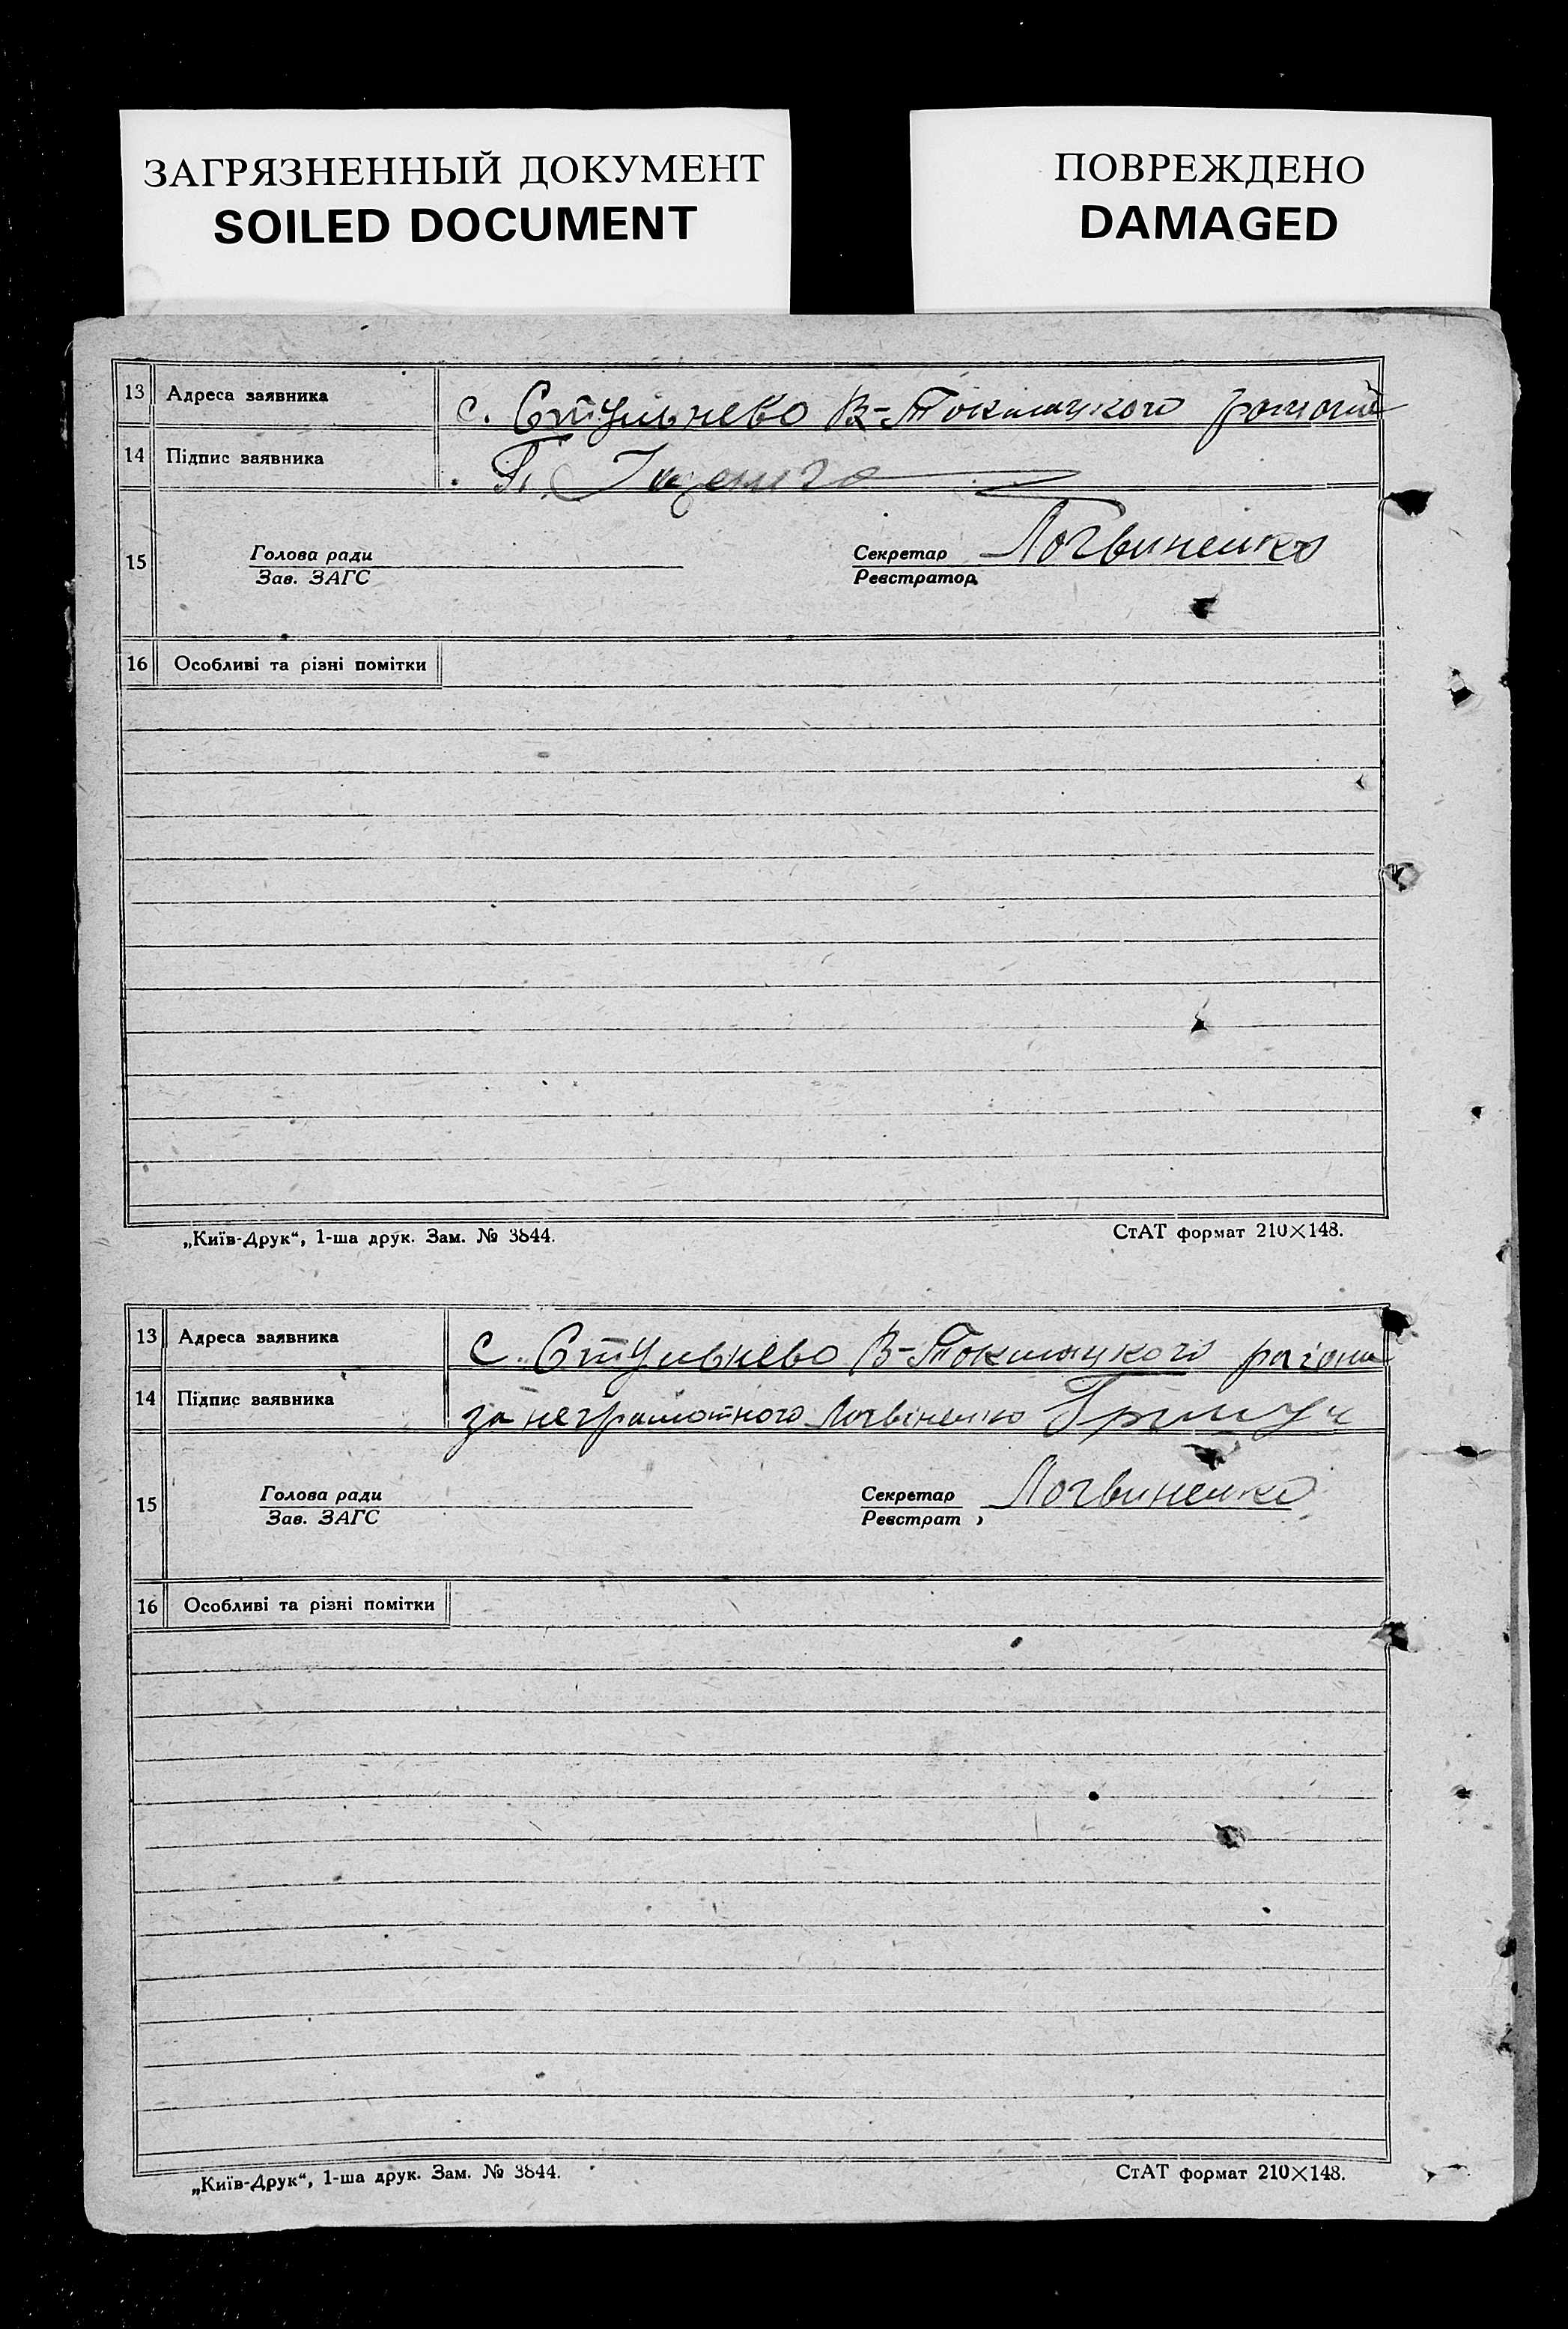 ЗАГРЯЗНЕННЫЙ ДОКУМЕНТ
SOILED DOCUMENT
ПОВРЕЖДЕНО
DAMAGED
13 Адреса заявника с. Стульнево В-Токмацкого района
14 Підпис заявника
15 Голова ради
Зав. ЗАГС
Секретар Логвиненко
Реєстратор
16 Особливі та різні помітки
„Київ-Друк“, 1-ша друк. Зам. № 3844.
СтАТ формат 210×148.
13 Адреса заявника с. Стульнево В-Токмацкого района
14 Підпис заявника за неграмотного Логвіненко
15 Голова ради
Зав. ЗАГС
Секретар Логвиненко
Реєстрат
16 Особливі та різні помітки
„Київ-Друк“, 1-ша друк. Зам. № 3844.
СтАТ формат 210×148.